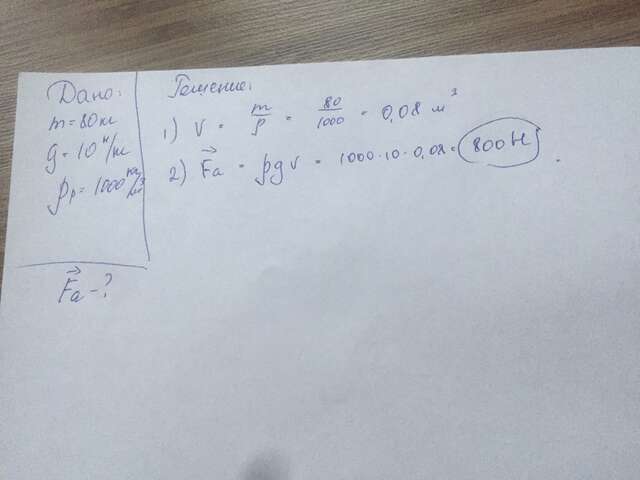 Дано:
m = 80 кг
g = 10 н/кг
ρр = 1000 кг/м³
F⃗a - ?
Решение:
1) V = m/ρ = 80/1000 = 0,08 м³
2) F⃗a = ρgv = 1000·10·0,08 = 800 Н